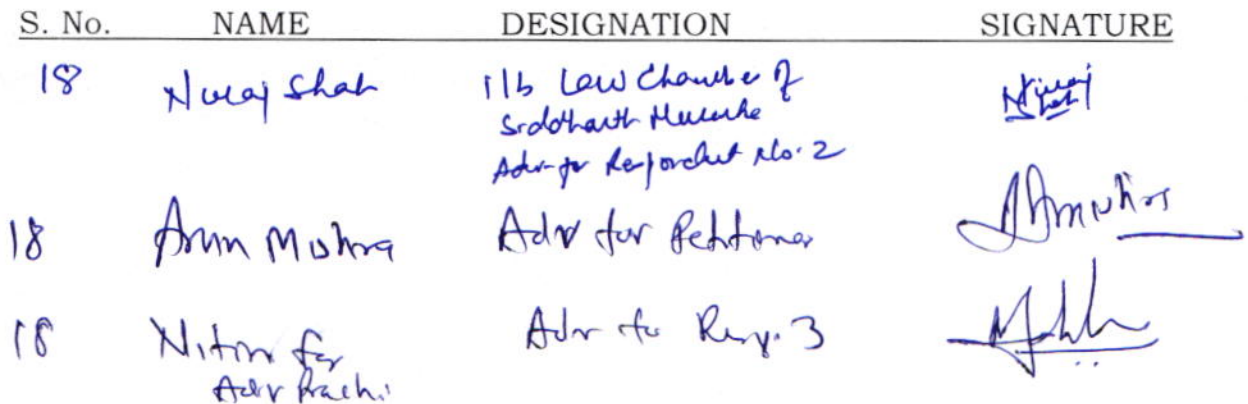 S. No. NAME DESIGNATION SIGNATURE
18 Niraj Shah i/b Law Chamber of
Siddharth
Adv for Respondent No. 2
18 Arun Mishra Adv for Petitioner
18 Nitin for Adv for Resp. 3
Adv Prachi